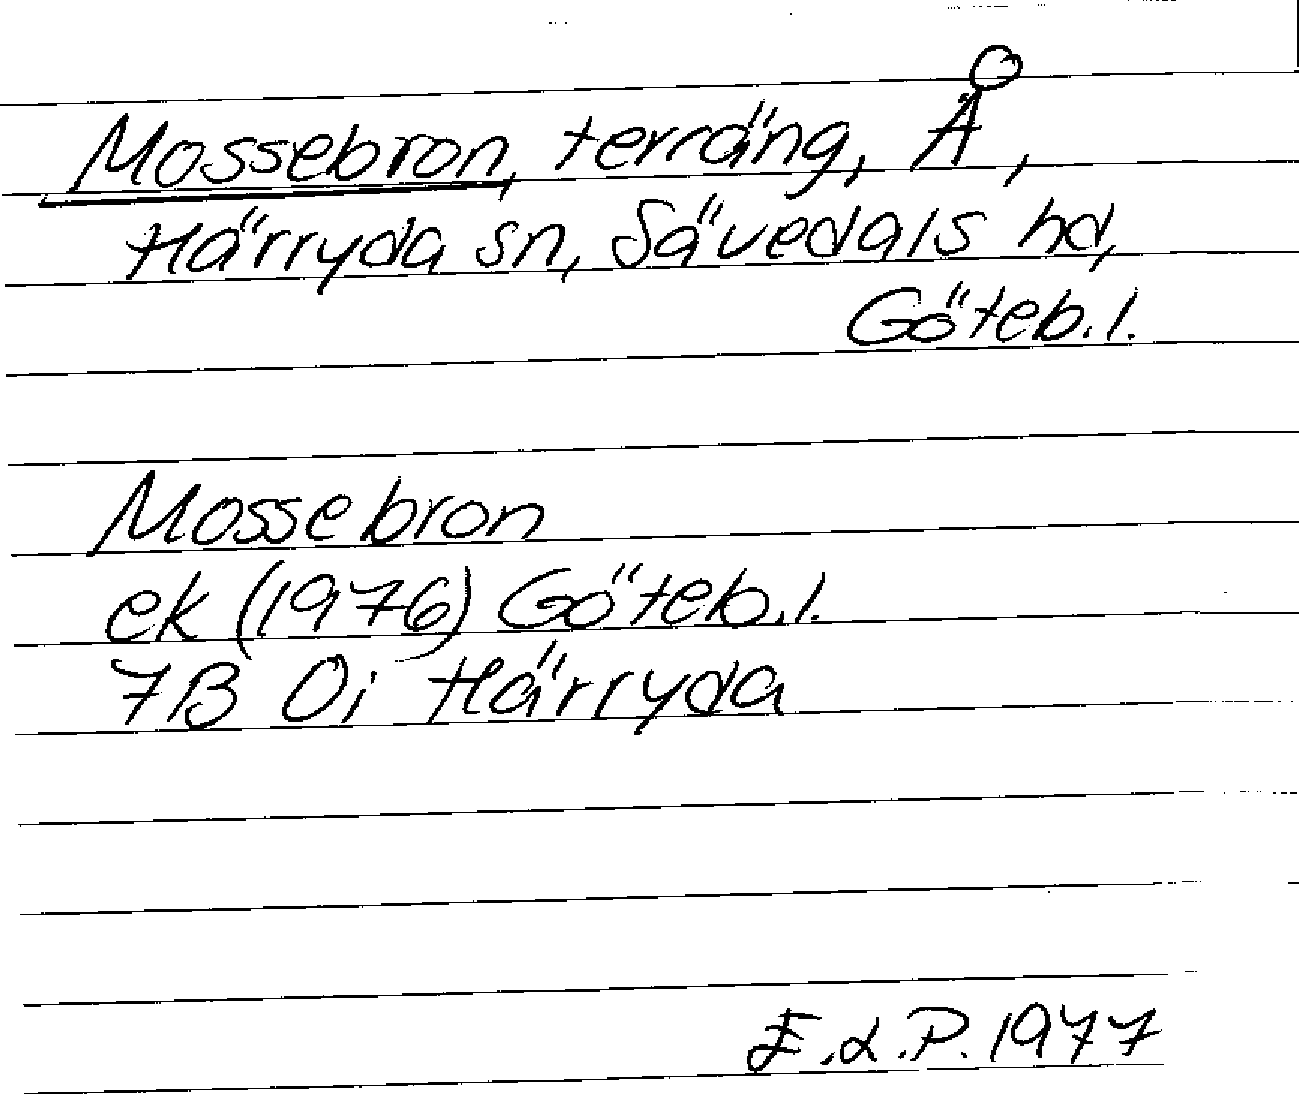 Mossebron, terräng, Å,
Härryda sn, Sävedals hd,
Göteb. l.
Mossebron
ek (1976) Göteb. l.
7B 0i Härryda
E.d.P. 1977